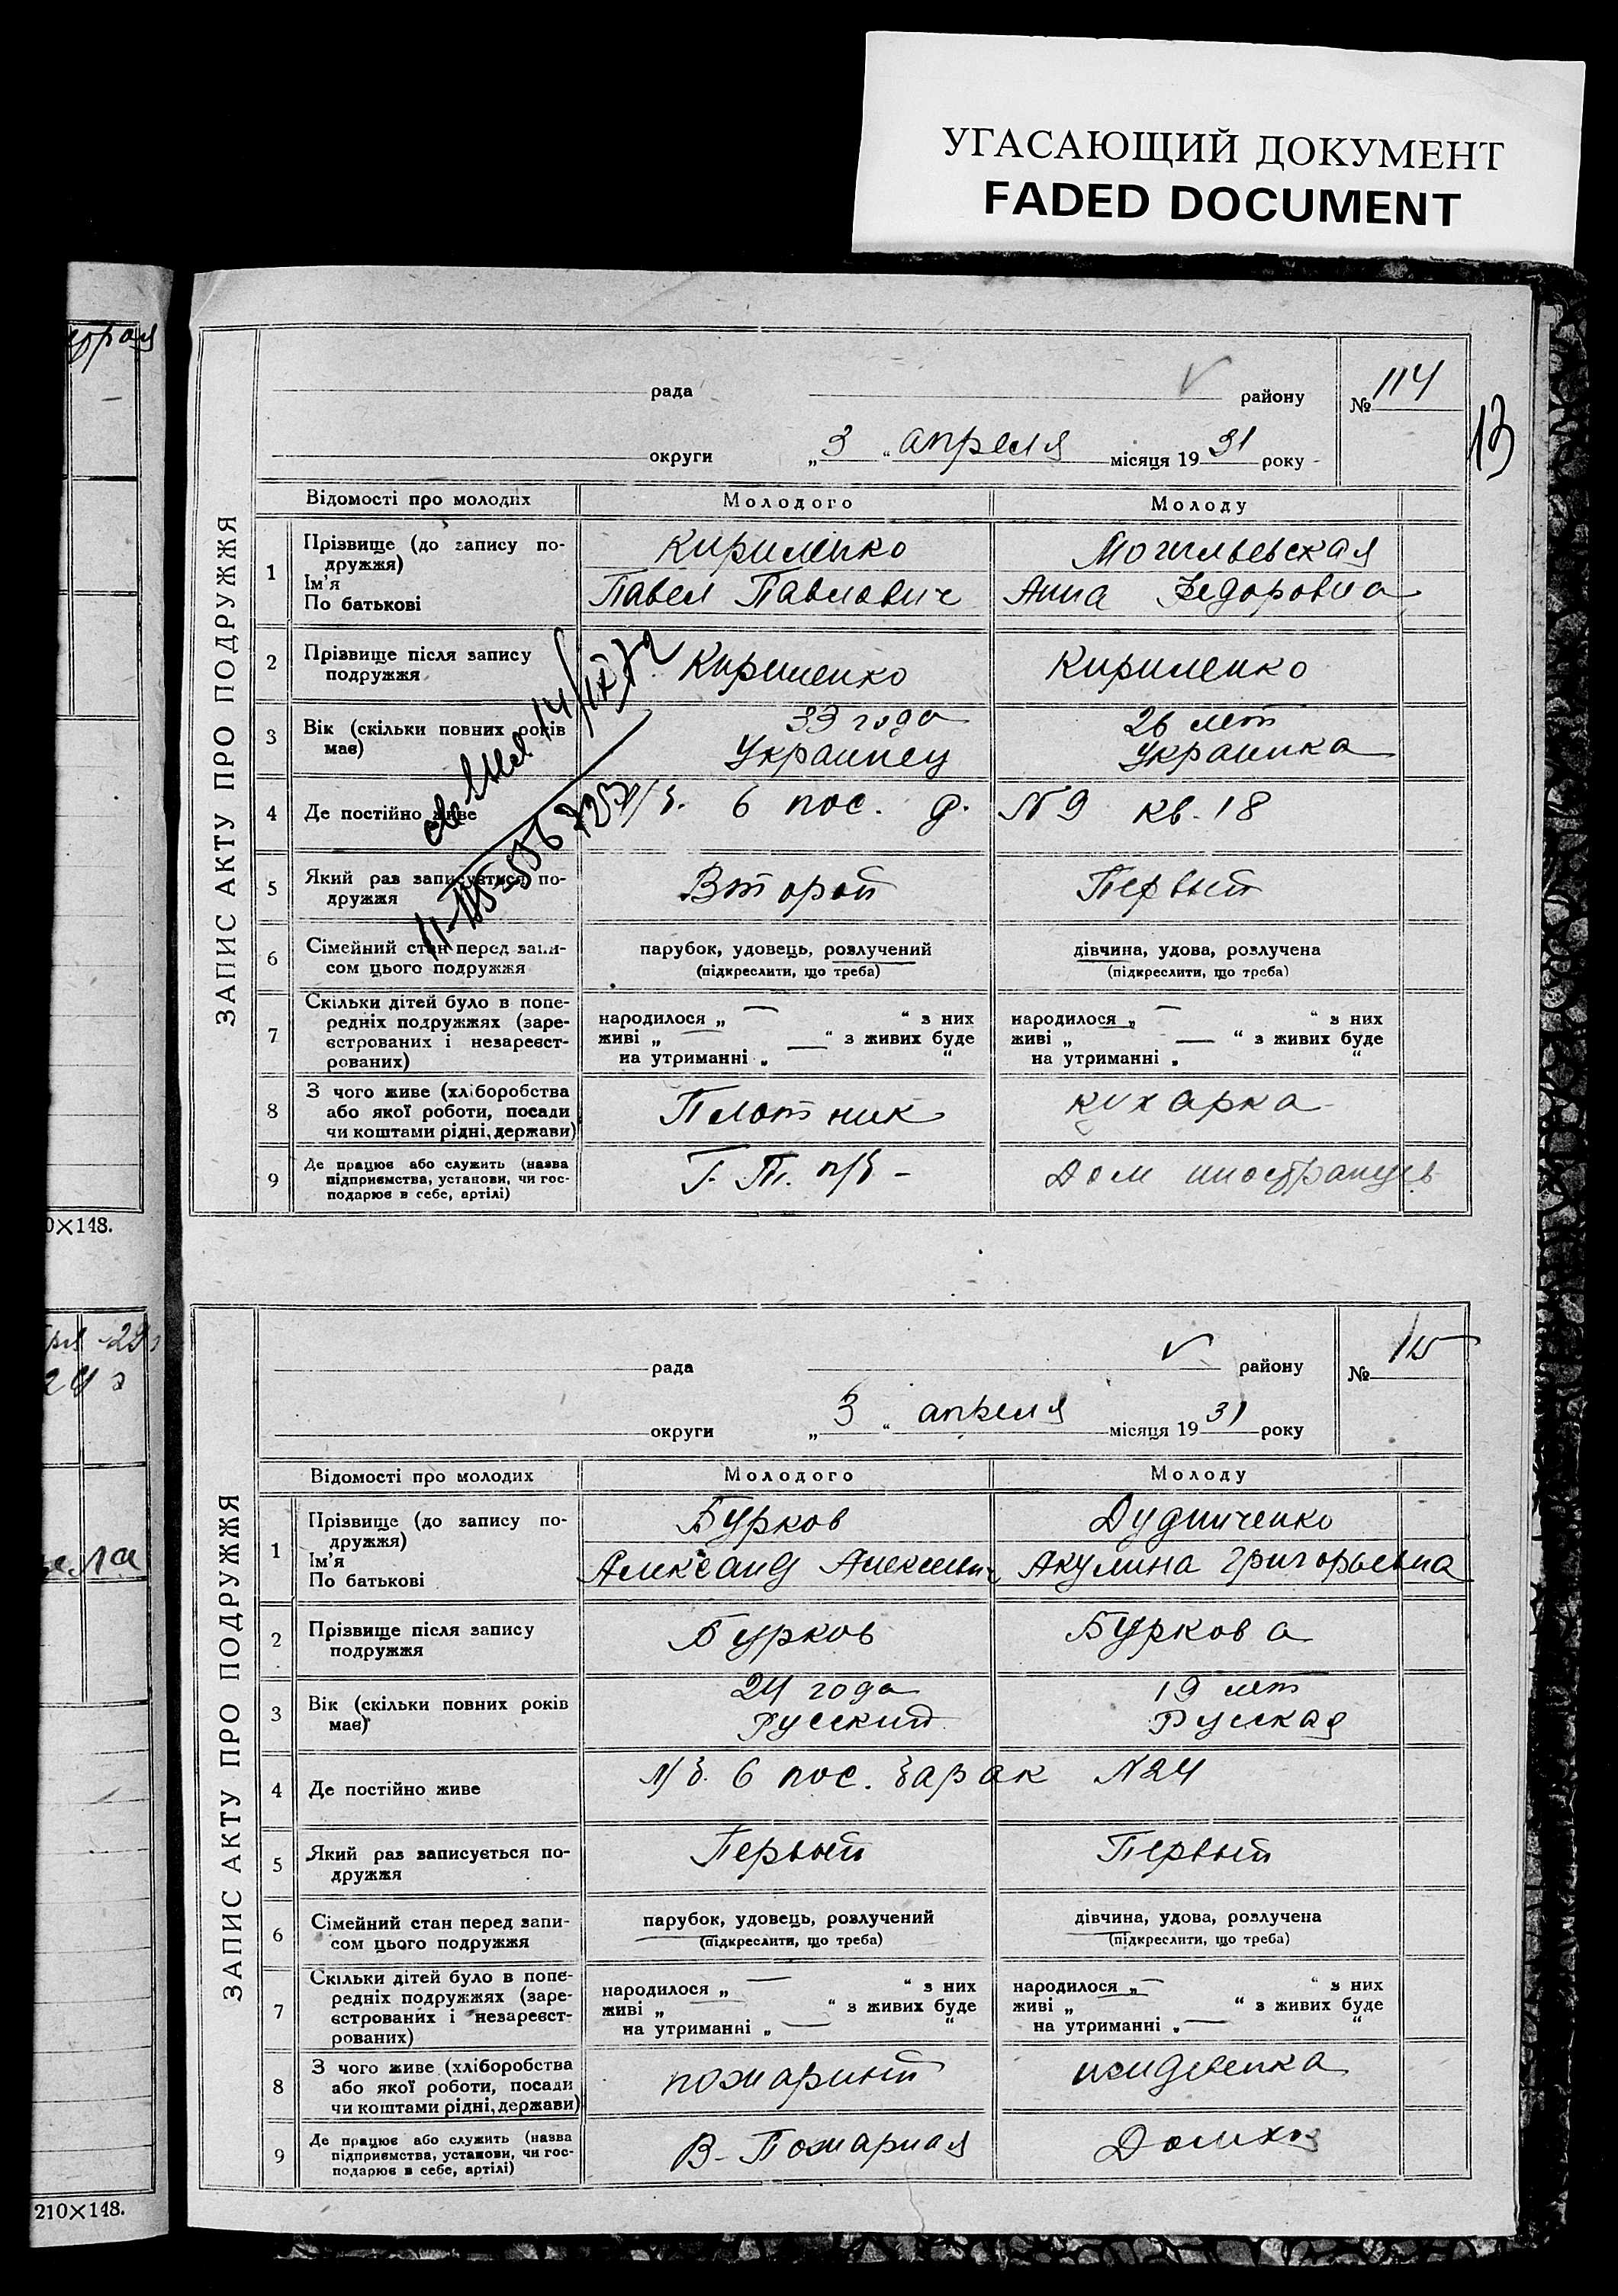 УГАСАЮЩИЙ ДОКУМЕНТ
FADED DOCUMENT
0×148.
210×148.
13
ЗАПИС АКТУ ПРО ПОДРУЖЖЯ
рада району № 114
округи „3“ апреля місяця 1931 року
Відомості про молодих Молодого Молоду
1 Прізвище (до запису по-
дружжя)
Ім'я
По батькові
Кириленко Могильевская
Павел Павлович Анна Федоровна
2 Прізвище після запису
подружжя
Кириленко Кириленко
3 Вік (скільки повних років
має)
33 года 26 лет
Украинец Украинка
4 Де постійно живе
6 пос. д. №9 кв. 18
5 Який раз записується по-
дружжя
Второй Первый
6 Сімейний стан перед запи-
сом цього подружжя
парубок, удовець, розлучений дівчина, удова, розлучена
(підкреслити, що треба) (підкреслити, що треба)
7 Скільки дітей було в попе-
редніх подружжях (заре-
єстрованих і незареєст-
рованих)
народилося „ — “ з них народилося „ — “ з них
живі „ — “ з живих буде живі „ — “ з живих буде
на утриманні „ “ на утриманні „ “
8 З чого живе (хліборобства
або якої роботи, посади
чи коштами рідні, держави)
Плотник кухарка
9 Де працює або служить (назва
підприємства, установи, чи гос-
подарює в себе, артілі)
Дом иностранцев
ЗАПИС АКТУ ПРО ПОДРУЖЖЯ
рада району № 115
округи „3“ апреля місяця 1931 року
Відомості про молодих Молодого Молоду
1 Прізвище (до запису по-
дружжя)
Ім'я
По батькові
Бурков Дудниченко
Александ Алексеевич Акулина Григорьевна
2 Прізвище після запису
подружжя
Бурков Буркова
3 Вік (скільки повних років
має)
24 года 19 лет
Русский Русская
4 Де постійно живе
6 пос. барак №24
5 Який раз записується по-
дружжя
Первый Первый
6 Сімейний стан перед запи-
сом цього подружжя
парубок, удовець, розлучений дівчина, удова, розлучена
(підкреслити, що треба) (підкреслити, що треба)
7 Скільки дітей було в попе-
редніх подружжях (заре-
єстрованих і незареєст-
рованих)
народилося „ — “ з них народилося „ — “ з них
живі „ “ з живих буде живі „ “ з живих буде
на утриманні „ — “ на утриманні „ — “
8 З чого живе (хліборобства
або якої роботи, посади
чи коштами рідні, держави)
пожарный иждевенка
9 Де працює або служить (назва
підприємства, установи, чи гос-
подарює в себе, артілі)
В-Пожарная Домхоз